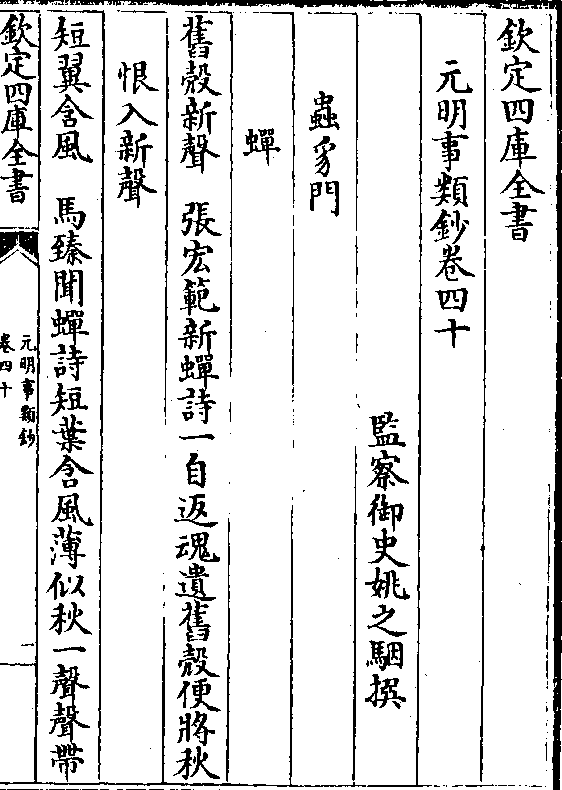 欽定四庫全書
元明事類鈔卷四十
監察御史姚之駰撰
蟲豸門
蟬
舊殼新聲　張宏範新蟬詩一自返魂遺舊殼便將秋
恨入新聲
短翼含風　馬臻聞蟬詩短葉含風薄似秋一聲聲帶
欽定四庫全書
元明事類鈔
卷四十